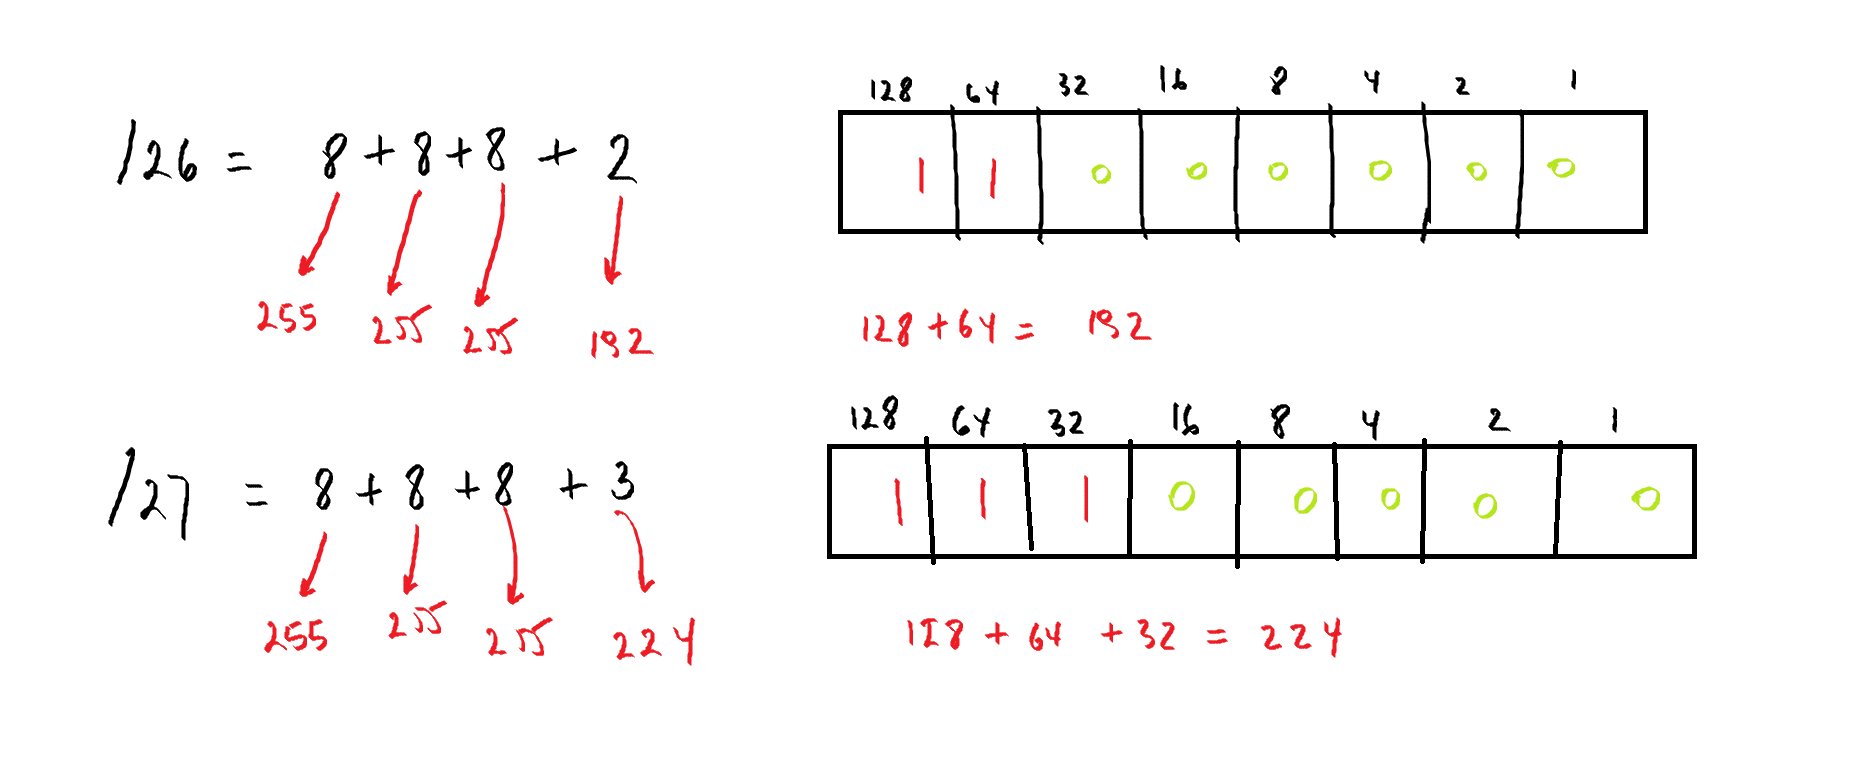 /26 = 8 + 8 + 8 + 2
255 255 255 192
128 64 32 16 8 4 2 1
1 1 0 0 0 0 0 0
128 + 64 = 192
/27 = 8 + 8 + 8 + 3
255 255 255 224
128 64 32 16 8 4 2 1
1 1 1 0 0 0 0 0
128 + 64 + 32 = 224